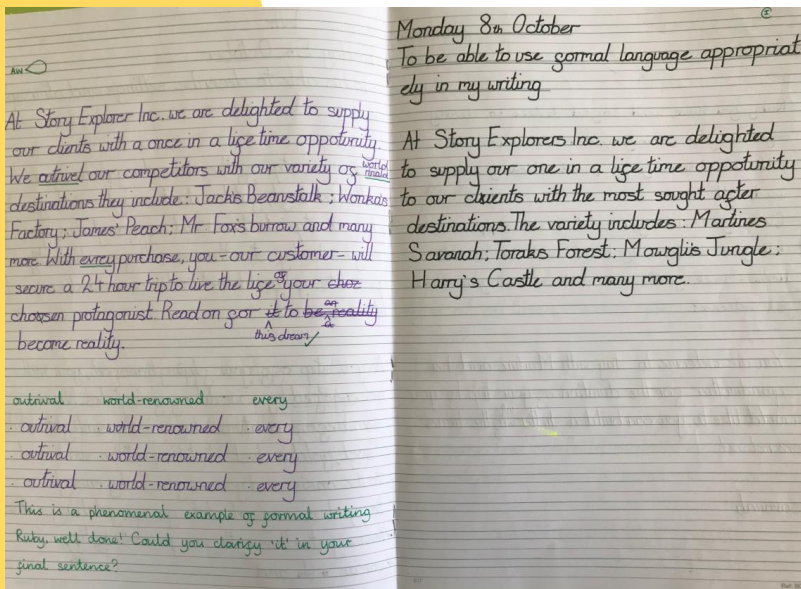 AW
At Story Explorer Inc. we are delighted to supply
our clients with a once in a life time oppotunity.
We outrivel our competitors with our variety of world rinald
destinations they include: Jack's Beanstalk; Wonka's
Factory; James' Peach; Mr Fox's burrow and many
more. With evrey purchase, you-our customer-will
secure a 24 hour trip to live the life of your choz
choosen protagonist. Read on for it to be reality
this dream
become reality.
outrival world-renowned every
· outrival · world-renowned · every
· outrival · world-renowned · every
· outrival · world-renowned · every
This is a phenomenal example of formal writing
Ruby, well done! Could you clarify 'it' in your
final sentence?
Monday 8th October
To be able to use formal language appropriat
ely in my writing
At Story Explorers Inc. we are delighted
to supply our one in a life time oppotunity
to our clients with the most sought after
destinations. The variety includes: Martines
Savanah; Toraks Forest; Mowglis Jungle;
Harry's Castle and many more.